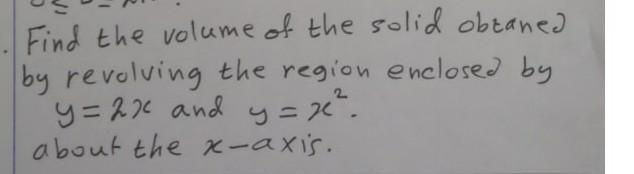 Find the volume of the solid obtaned
by revolving the region enclosed by
y=2x and y=x².
about the x-axis.